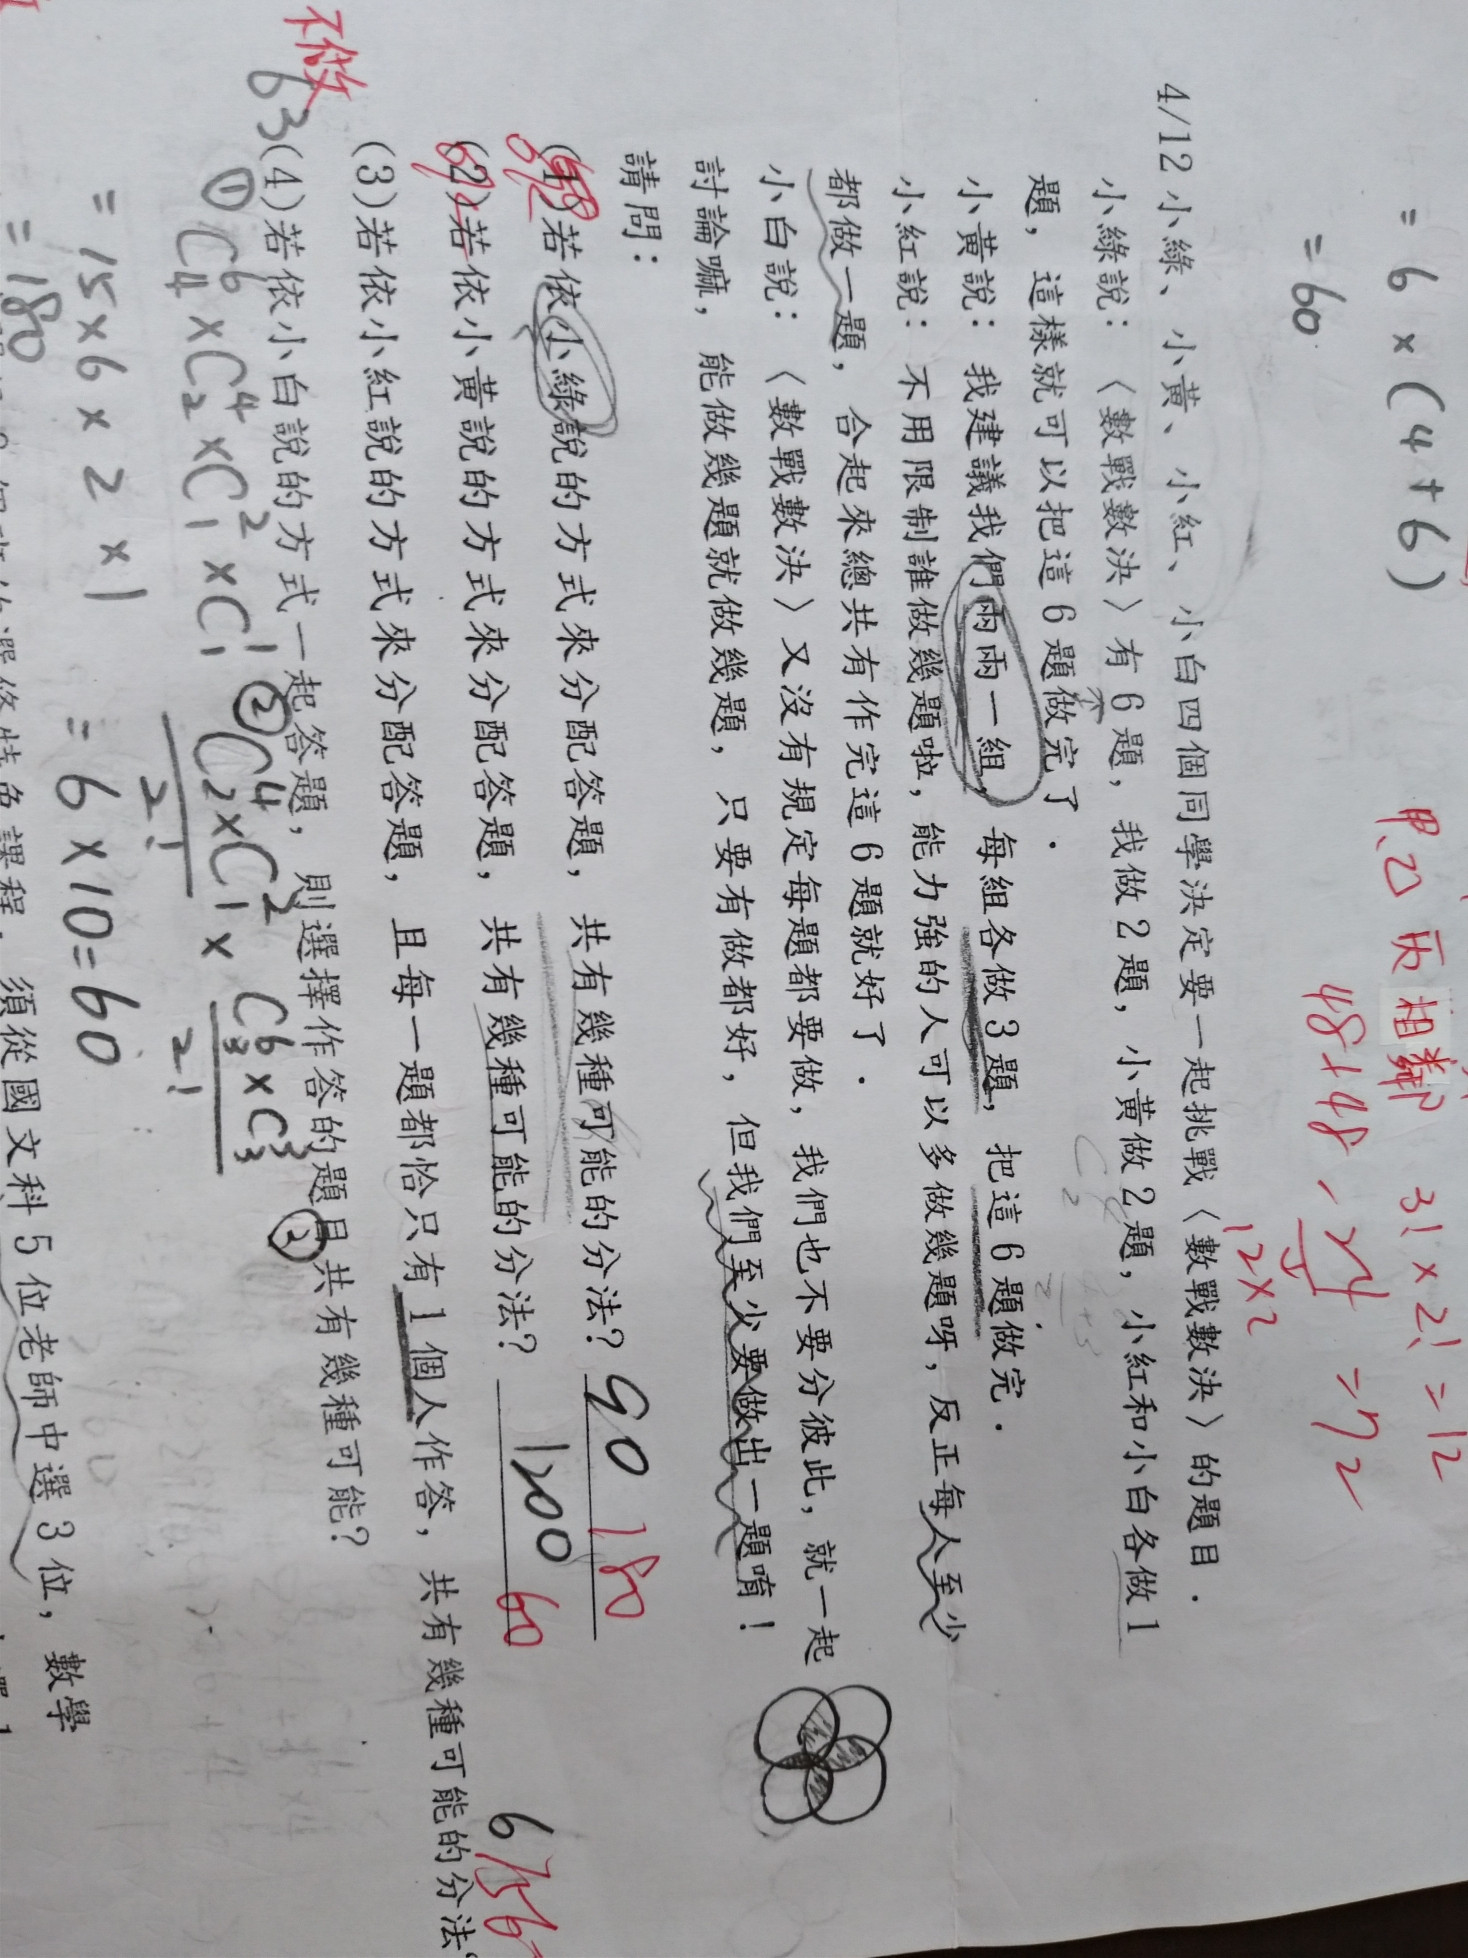 = 6 × (4 + 6)
= 60
甲乙丙相鄰 3! × 2! = 12
48 + 48
12×2
= 72
4/12 小綠、小黃、小紅、小白四個同學決定要一起挑戰〈數戰數決〉的題目．
小綠說：〈數戰數決〉有 6 題，我做 2 題，小黃做 2 題，小紅和小白各做 1
題，這樣就可以把這 6 題做完了．
小黃說：我建議我們兩兩一組，每組各做 3 題，把這 6 題做完．
小紅說：不用限制誰做幾題啦，能力強的人可以多做幾題呀，反正每人至少
都做一題，合起來總共有作完這 6 題就好了．
小白說：〈數戰數決〉又沒有規定每題都要做，我們也不要分彼此，就一起
討論嘛，能做幾題就做幾題，只要有做都好，但我們至少要做出一題唷！
請問：
(1)若依小綠說的方式來分配答題，共有幾種可能的分法？ 90 180
(2)若依小黃說的方式來分配答題，共有幾種可能的分法？ 1200 60
(3)若依小紅說的方式來分配答題，且每一題都恰只有 1 個人作答，共有幾種可能的分法
不做
63 (4)若依小白說的方式一起答題，則選擇作答的題目共有幾種可能？
① C⁶₄ × C⁴₂ × C²₁ × C¹₁ ② C⁴₂ × C²₁ × C⁶₃ × C³₃
2! 2!
= 15 × 6 × 2 × 1 = 6 × 10 = 60
= 180
須從國文科 5 位老師中選 3 位，數學